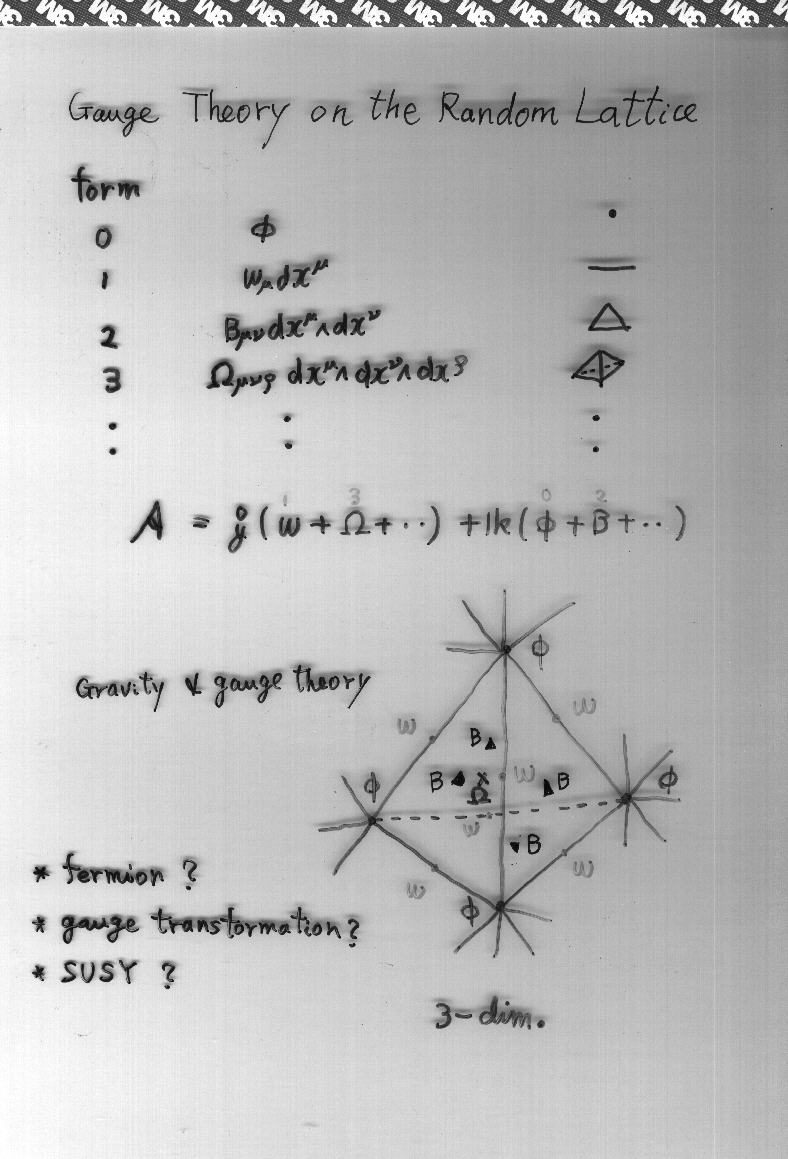 Gauge Theory on the Random Lattice
form
0 ϕ
1 ω_μ dx^μ
2 B_μν dx^μ ∧ dx^ν
3 Ω_μνρ dx^μ ∧ dx^ν ∧ dx^ρ
1 3 0 2
A = (ω + Ω + ··) + k(ϕ + B + ··)
ϕ
Gravity & gauge theory
ω ω
B
ϕ B × ω B ϕ
Ω
ω
B
* fermion ?
ω ω
ϕ
* gauge transformation?
* SUSY ?
3-dim.